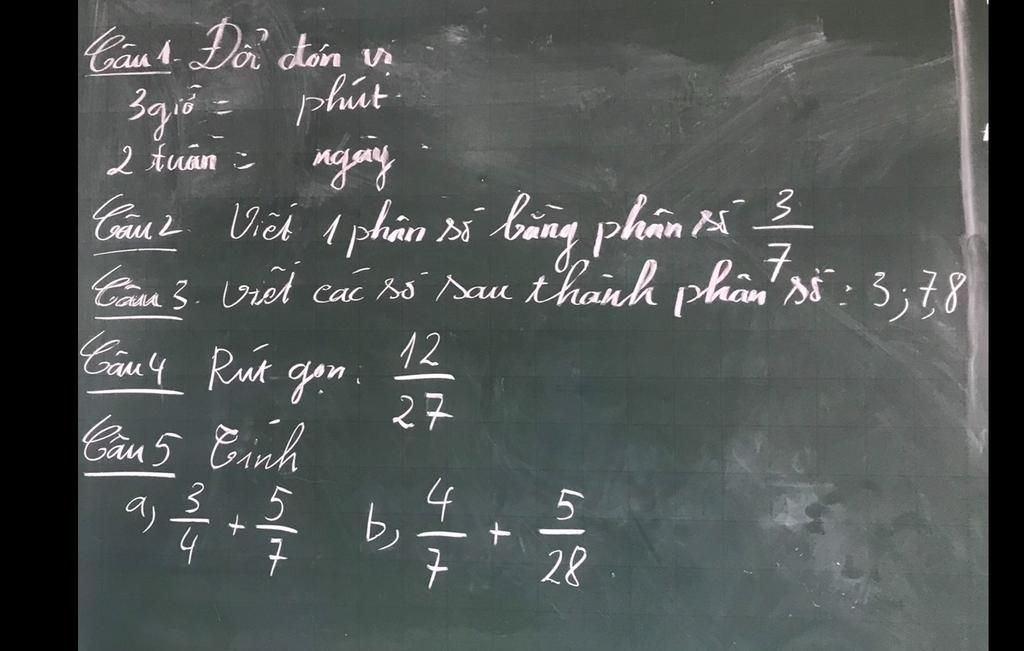 Câu 1. Đổi đơn vị
3 giờ = phút
2 tuần = ngày
Câu 2. Viết 1 phân số bằng phân số 3/7
Câu 3. Viết các số sau thành phân số: 3; 7, 8
Câu 4 Rút gọn: 12/27
Câu 5 Tính
a, 3/4 + 5/7 b, 4/7 + 5/28